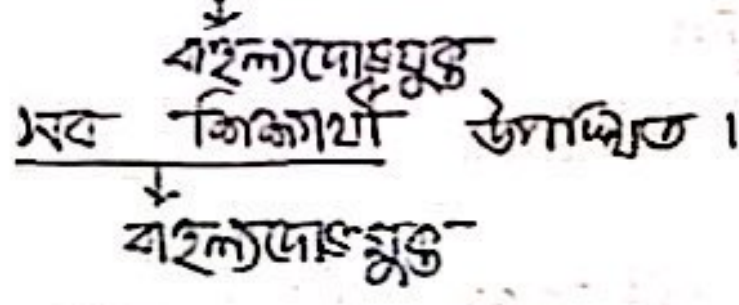 বাহুল্যদোষমুক্ত
সব শিক্ষার্থী উপস্থিত।
বাহুল্যদোষমুক্ত